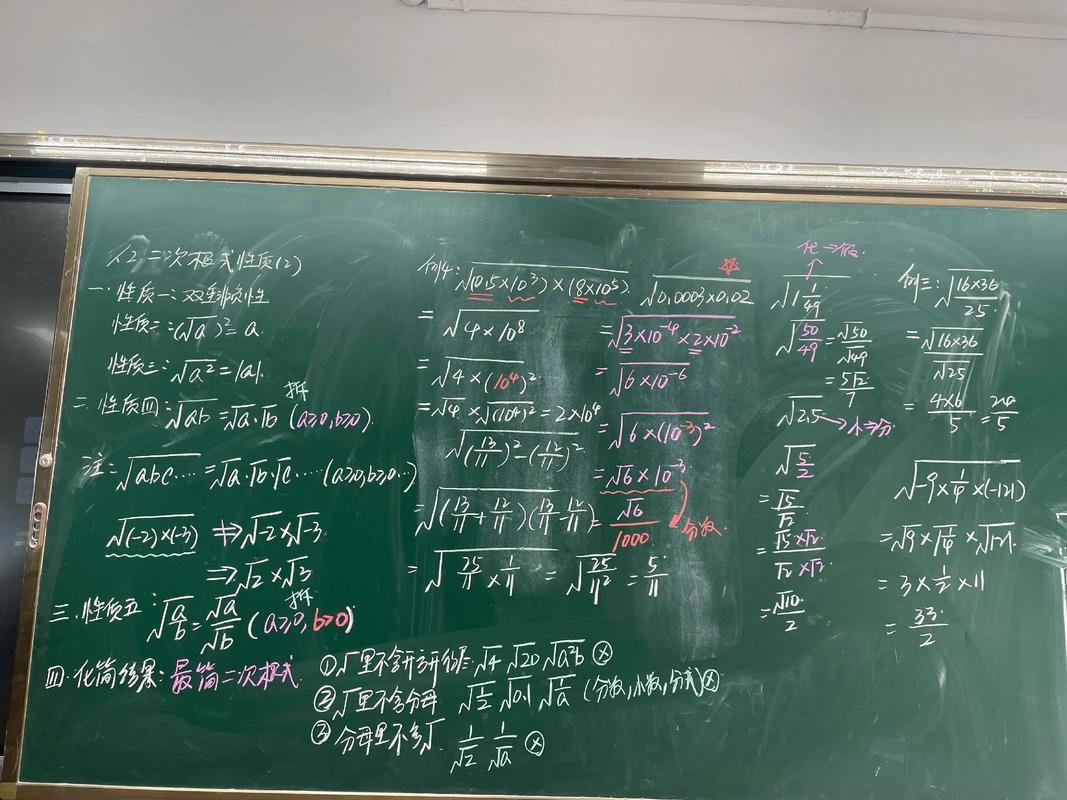 12. 二次根式性质(2)
一. 性质一: 双重非负性
性质二: (√a)² = a.
性质三: √a² = |a|.
二. 性质四: √ab = √a·√b (a≥0, b≥0).
拆
注: √abc···· = √a·√b·√c····(a≥0, b≥0··)
√(-2)×(-3) ≠> √-2×√-3
=> √2×√3
三. 性质五: √(a/b) = √a/√b (a≥0, b>0)
拆
四. 化简结果: 最简二次根式.
① √里不含开方开得尽: √4 √20 √a²b ⊗
② √里不含分母 √(1/2) √0.1 √(1/a) (分数, 小数, 分式)⊗
③ 分母里不含√. 1/√2 1/√a ⊗
例4: √(0.5×10³)×(8×10⁵)
= √4×10⁸
= √4×(10⁴)²
= √4×√(10⁴)² = 2×10⁴
√(13/11)²-(12/11)²
= √(13/11+12/11)(13/11-12/11)
= √(25/11×1/11) = √(25/11²) = 5/11
☆
√0.0003×0.02
= √3×10⁻⁴×2×10⁻²
= √6×10⁻⁶
= √6×(10⁻³)²
= √6×10⁻³
= √6/1000
分数.
化→假.
√(1 1/49)
√(50/49) = √50/√49
= 5√2/7
√2.5 → 小⇒分.
√(5/2)
= √5/√2
= √5×√2/√2×√2
= √10/2
例三: √(16×36/25)
= √16×36/√25
= 4×6/5 = 24/5
√-9×1/4×(-121)
= √9×√(1/4)×√121.
= 3×1/2×11
= 33/2